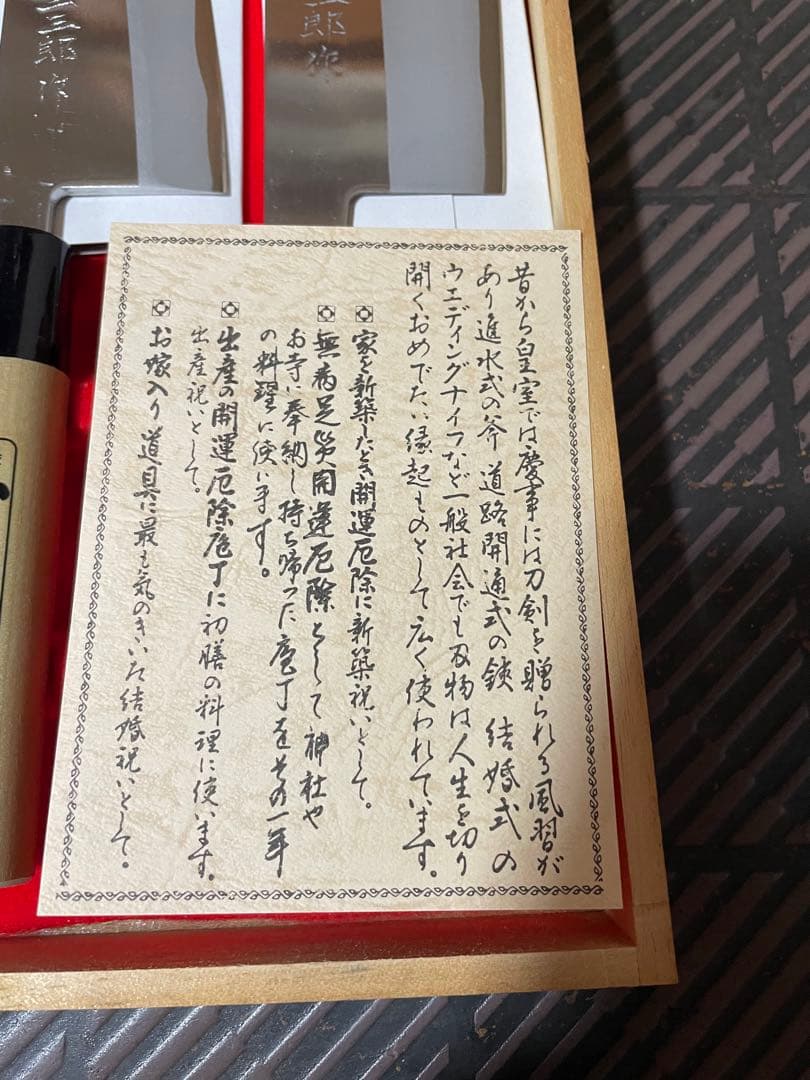 三郎作
郎作
昔から皇室では慶事には刀剣を贈られる風習が
あり進水式の斧 道路開通式の鋏 結婚式の
ウエディングナイフなど一般社会でも刃物は人生を切り
開くおめでたい縁起ものとして広く使われています。
家を新築したとき開運厄除に新築祝いとして。
無病息災開運厄除として神社や
お寺に奉納し持ち帰った庖丁をその一年
の料理に使います。
出産の開運厄除庖丁に初膳の料理に使います。
出産祝いとして。
お嫁入り道具に最も気のきいた結婚祝いとして。